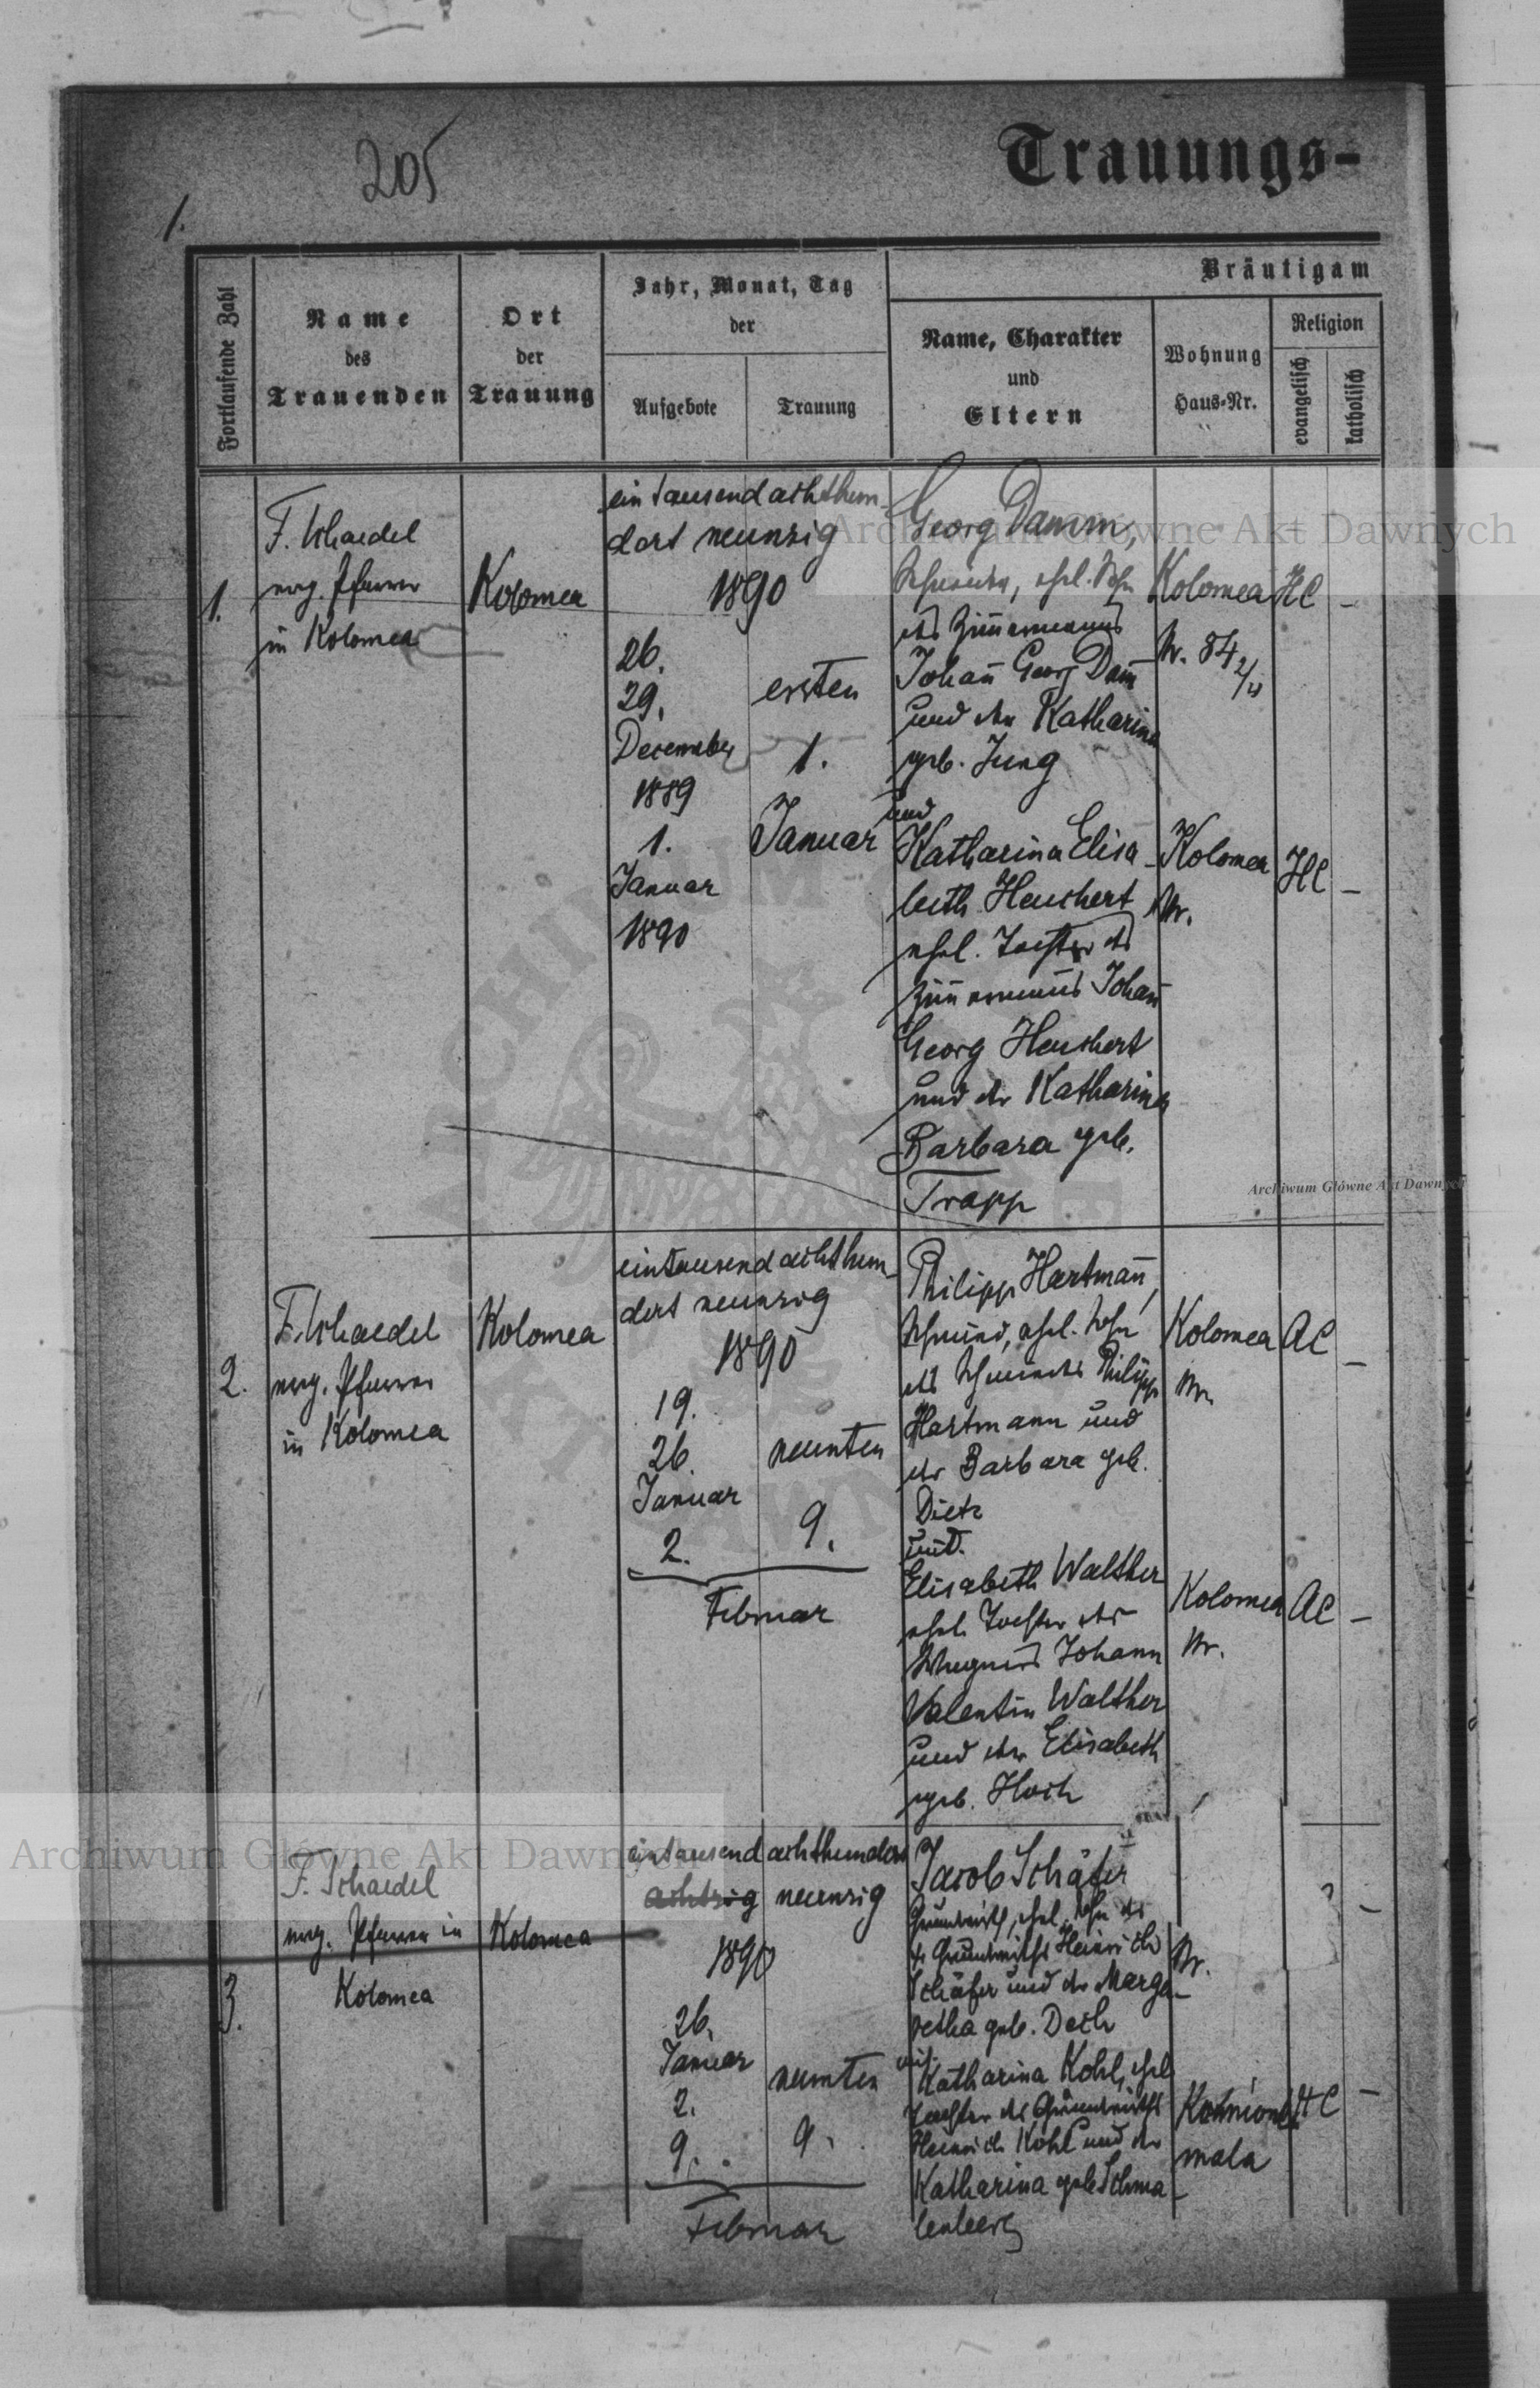 205
Trauungs-
1.
Fortlaufende Zahl
Name
des
Trauenden
Ort
der
Trauung
Jahr, Monat, Tag
der
Aufgebote
Trauung
Bräutigam
Name, Charakter
und
Eltern
Wohnung
Haus-Nr.
Religion
evangelisch
katholisch
1.
F. Schaedel
evg. Pfarrer
in Kolomea
Kolomea
ein tausend achthun-
dert neunzig
1890
26.
29.
December
1889
1.
Januar
1890
ersten
1.
Januar
Georg Damm,
ehel. Sohn
des Zimmermanns
Johann Georg Damm
und der Katharina
geb. Jung
und
Katharina Elisa-
beth Heuchert
ehel. Tochter des
Zimmermanns Johann
Georg Heuchert
und der Katharina
Barbara geb.
Trapp
Kolomea
Nr. 84 2/4
HC –
Kolomea
Nr.
HC –
2.
F. Schaedel
evg. Pfarrer
in Kolomea
Kolomea
eintausend achthun-
dert neunzig
1890
19.
26.
Januar
2.
neunten
9.
Februar
Philipp Hartmann,
Schmied, ehel. Sohn
des Schmiedes Philipp
Hartmann und
der Barbara geb.
Dietz
und
Elisabeth Walther
ehel. Tochter des
Wagners Johann
Valentin Walther
und der Elisabeth
geb. Hoch
Kolomea
Nr.
AC –
Kolomea
Nr.
AC –
3.
F. Schaedel
evg. Pfarrer in
Kolomea
Kolomea
eintausend achthundert
achtzig neunzig
1890
26.
Januar
2.
9.
neunten
9.
Februar
Jacob Schäfer
Grundwirth, ehel. Sohn des
Grundwirths Heinrich
Schäfer und der Marga-
retha geb. Dech
mit
Katharina Kohl, ehel.
Tochter des Grundwirths
Heinrich Kohl und der
Katharina geb. Schma-
lenberg
Nr.
–
mala
HC –
Archiwum Główne Akt Dawnych
Archiwum Główne Akt Dawnych
Archiwum Główne Akt Dawnych